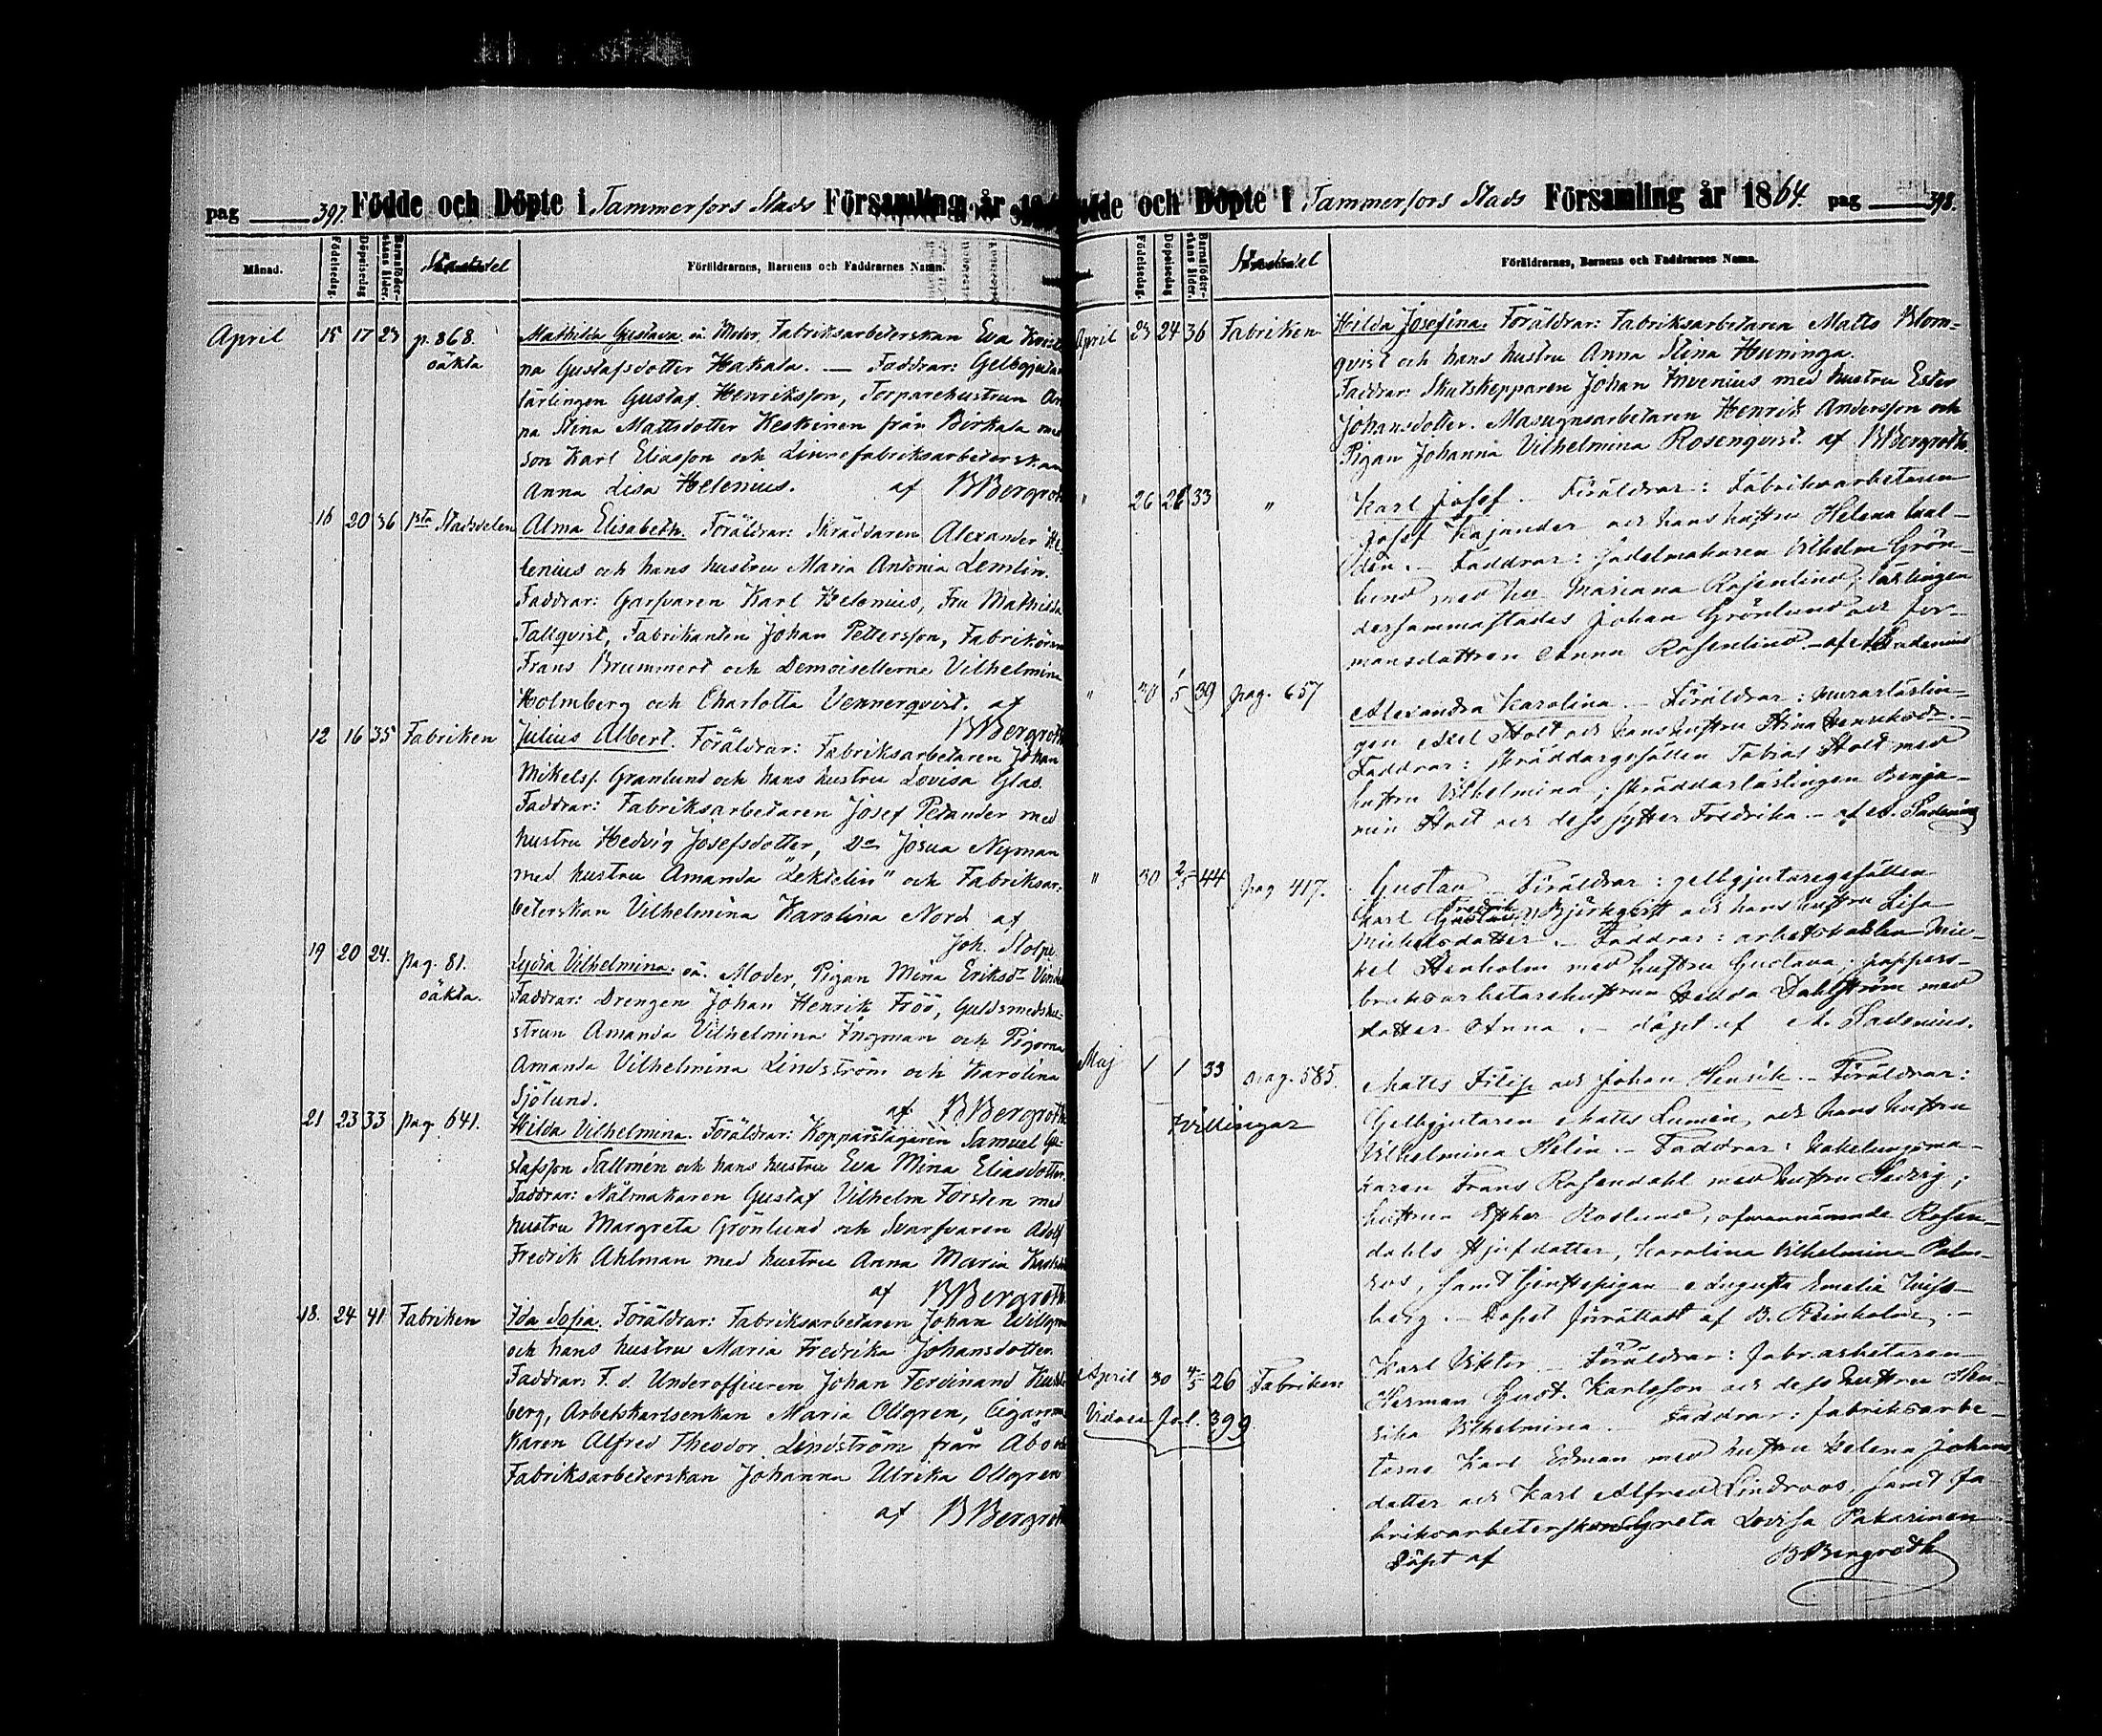 pag 397. Födde och Döpte i Tammerfors Stads Församling år
Månad. Födelsedag. Döpelsedag Barnaföderskans ålder. Stadsdel Föräldrarnes, Barnens och Faddrarnes Namn.
April 15 17 23 p. 868. oäkta Mathilda Gustava oä. Moder, Fabriksarbeterskan Eva Kristi
na Gustafsdotter Hakala. — Faddrar: Gelbgjutare
lärlingen Gustaf Henriksson, Torparehustrun An
na Stina Mattsdotter Keskinen från Birkala med
son Karl Eliasson och Linnefabriksarbeterskan
Anna Lisa Helenius. af BBergroth
16 20 36 1sta Stadsdelen Alma Elisabeth. Föräldrar: Skräddaren Alexander He-
lenius och hans hustru Maria Antonia Lemlin.
Faddrar: Garfvaren Karl Helenius, Fru Mathilda
Tallqvist, Fabrikanten Johan Pettersson, Fabrikören
Frans Brummert och Demoisellerna Vilhelmina
Holmberg och Charlotta Vennerqvist. af
BBergroth
12 16 35 Fabriken Julius Albert. Föräldrar: Fabriksarbetaren Johan
Mikelss. Granlund och hans hustru Lovisa Glas.
Faddrar: Fabriksarbetaren Josef Petander med
hustru Hedvig Josefsdotter, Do Josua Nyman
med hustru Amanda "Lektelin" och Fabriksar-
beterskan Vilhelmina Karolina Nord af
Joh. Stolpe
19 20 24. pag. 81. oäkta. Lydia Vilhelmina. oä. Moder, Pigan Mina Eriksdr
Faddrar: Drengen Johan Henrik Fröö, Guldsmedshu-
strun Amanda Vilhelmina Ingman och Pigorna
Amanda Vilhelmina Lindström och Karolina
Sjölund. af BBergroth
21 23 33 pag. 641. Hilda Vilhelmina. Föräldrar: Kopparslagaren Samuel Gu-
stafsson Sallmén och hans hustru Eva Mina Eliasdotter.
Faddrar: Nålmakaren Gustaf Vilhelm Forsten med
hustru Margreta Grönlund och Svarfvaren Adolf
Fredrik Ahlman med hustru Anna Maria
af BBergroth
18. 24 41 Fabriken Ida Sofia. Föräldrar: Fabriksarbetaren Johan Willgren
och hans hustru Maria Fredrika Johansdotter.
Faddrar: F. d. Underofficeren Johan Ferdinand
berg, Arbetskarlsenkan Maria Ollgren, Cigarrma
karen Alfred Theodor Lindström från Åbo och
Fabriksarbeterskan Johanna Ulrika Ollgren
af BBergroth
Födde och Döpte i Tammerfors Stads Församling år 1864. pag 398.
Födelsedag. Döpelsedag Barnaföderskans ålder. Stadsdel Föräldrarnes, Barnens och Faddrarnes Namn.
April 23 24 36 Fabriken Hilda Josefina. Föräldrar: Fabriksarbetaren Matts Blom-
qvist och hans hustru Anna Stina Huninga.
Faddrar: Skutskepparen Johan Invenius med hustru Ester
Johansdotter. Masugnsarbetaren Henrik Andersson och
Pigan Johanna Vilhelmina Rosenqvist. af BBergroth.
" 26 28 33 " Karl Josef. — Föräldrar: Fabriksarbetaren
Josef Kajander och hans hustru Helena Wal-
dén. — Faddrar: Sadelmakaren Vilhelm Grön-
lund med hu Mariana Rosenlind; Lärlingen
dersammastädes Johan Grönlund och for-
mansdottren Anna Rosenlind. — af A. Ladenius
" 30 1/5 39 pag. 657 Alexandra Karolina. — Föräldrar: murarlärlin-
gen Axel Stolt och hans hustru Stina Henriksdr. —
Faddrar: Skräddargesällen Tobias Stolt med
hustru Vilhelmina; skräddarlärlingen Benja-
min Stolt och dess syster Fredrika. — af A. Ladenius
" 30 2/5 44 pag 417. Gustav — Föräldrar: gelbgjutaregesällen
Karl Fredrik Björkqvist och hans hustru Lisa
Michelsdotter. — Faddrar: arbetskarlen Mic-
kel Stenholm med hustru Gustava; pappers-
bruksarbetarehustrun Hedda Dahlström med
dotter Anna. — Döpt af A. Ladenius.
Maj 1 1 33 pag. 585. Tvillingar Matts Filip och Johan Henrik. — Föräldrar:
Gelbgjutaren Matts Lumén, och hans hustru
Vilhelmina Helin. — Faddrar: kakelugnsma-
karen Frans Rosendahl med hustru Hedvig;
hustrun Esther Roslund, ofvannämnde Rosen-
dahls styfdotter, Karolina Vilhelmina Palm-
ros, samt tjenstepigan Augusta Emelia
berg. — Dopet förrättadt af B. Reinholm. —
April 30 4/5 26 Fabriken Karl Viktor. — Föräldrar: fabr.arbetaren
Herman Gust. Karlsson och dess hustru Hen-
rika Vilhelmina. — Faddrar: fabriksarbe-
tarne Karl Edman med hustru Helena Johans
dotter och Karl Alfred Lindroos, samt fa-
briksarbeterskan Greta Lovisa Pakarinen —
Döpt af BBergroth
Vidare fol. 399